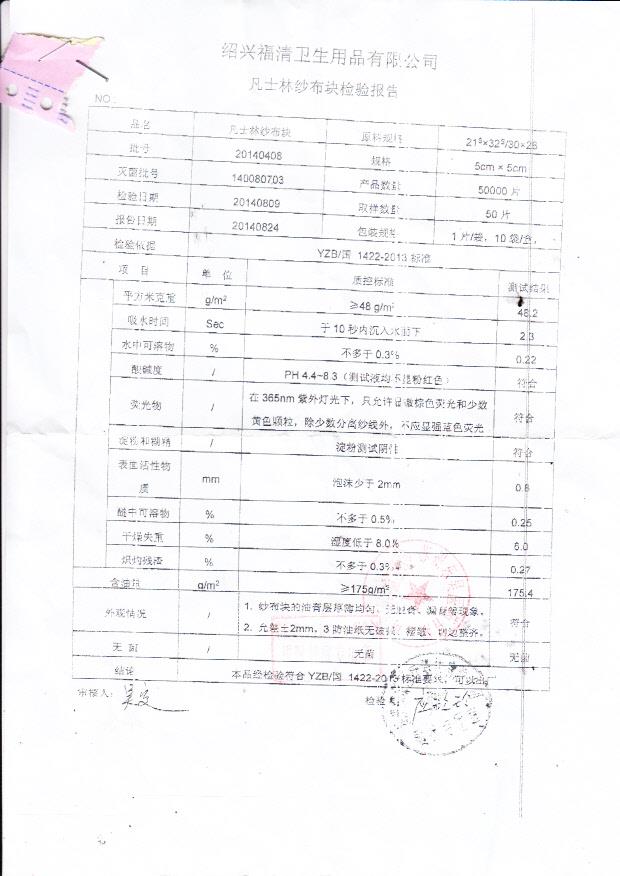 绍兴福清卫生用品有限公司
凡士林纱布块检验报告
NO:
品名 凡士林纱布块 原料规格 21ˢ×32ˢ/30×28
批号 20140408 规格 5cm × 5cm
灭菌批号 140080703 产品数量 50000 片
检验日期 20140809 取样数量 50 片
报告日期 20140824 包装规格 1 片/袋，10 袋/盒，
检验依据 YZB/国 1422-2013 标准
项 目 单 位 质控标准 测试结果
平方米克重 g/m² ≥48 g/m² 48.2
吸水时间 Sec 于 10 秒内沉入水面下 2.3
水中可溶物 % 不多于 0.3% 0.22
酸碱度 / PH 4.4~8.3（测试液均不显粉红色） 符合
荧光物 / 在 365nm 紫外灯光下，只允许显微棕色荧光和少数 符合
黄色颗粒，除少数分离纱线外，不应显强蓝色荧光
淀粉和糊精 / 淀粉测试阴性 符合
表面活性物
质 mm 泡沫少于 2mm 0.8
醚中可溶物 % 不多于 0.5% 0.25
干燥失重 % 湿度低于 8.0% 6.0
炽灼残渣 % 不多于 0.3% 0.27
含油量 g/m² ≥175g/m² 175.4
外观情况 / 1. 纱布块的油膏层厚薄均匀、 漏 等现象。 符合
2. 允差±2mm。3 防油纸无破损、 切边整齐。
无 菌 / 无菌 无菌
结论 本品经检验符合 YZB/国 1422-2013 标准要求，可以出厂
审核人: 检验